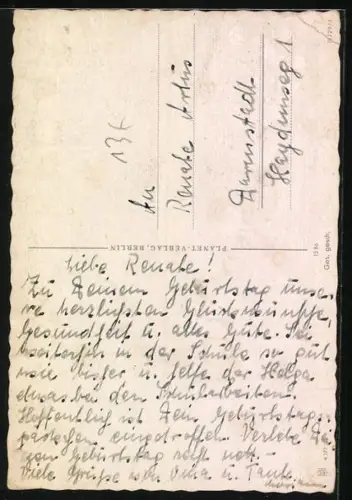 An
Renate Artus
Darmstadt
Haydnweg 1
13 6
PLANET-VERLAG, BERLIN
Ges. gesch.
Liebe Renate!
Zu Deinem Geburtstag unse-
re herzlichsten Glückwünsche,
Gesundheit u. alles Gute. Sei
weiterhin in der Schule so gut
wie bisher u. helfe der Helga
etwas bei den Schularbeiten.
Hoffentlich ist Dein Geburtstags-
päckchen eingetroffen. Verlebe Dei-
nen Geburtstag recht nett.
Viele Grüße von Oma u. Tante